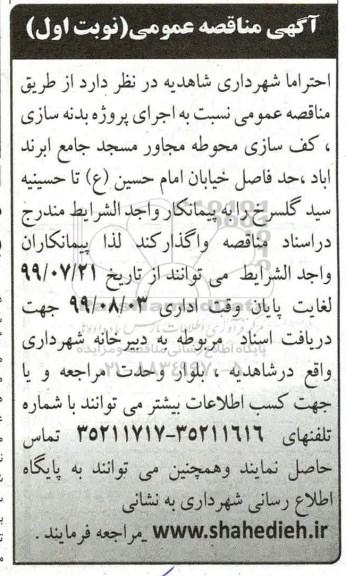 آگهی مناقصه عمومی(نوبت اول)
احتراما شهرداری شاهدیه در نظر دارد از طریق
مناقصه عمومی نسبت به اجرای پروژه بدنه سازی
، کف سازی محوطه مجاور مسجد جامع ابرند
اباد ،حد فاصل خیابان امام حسین (ع) تا حسینیه
سید گلسرخ را به پیمانکار واجد الشرایط مندرج
دراسناد مناقصه واگذار کند لذا پیمانکاران
واجد الشرایط می توانند از تاریخ ۹۹/۰۷/۲۱
لغایت پایان وقت اداری ۹۹/۰۸/۰۳ جهت
دریافت اسناد مربوطه به دبیرخانه شهرداری
واقع درشاهدیه ، بلوار وحدت مراجعه و یا
جهت کسب اطلاعات بیشتر می توانند با شماره
تلفنهای ۳۵۲۱۱۶۱۶-۳۵۲۱۱۷۱۷ تماس
حاصل نمایند وهمچنین می توانند به پایگاه
اطلاع رسانی شهرداری به نشانی
www.shahedieh.ir مراجعه فرمایند .